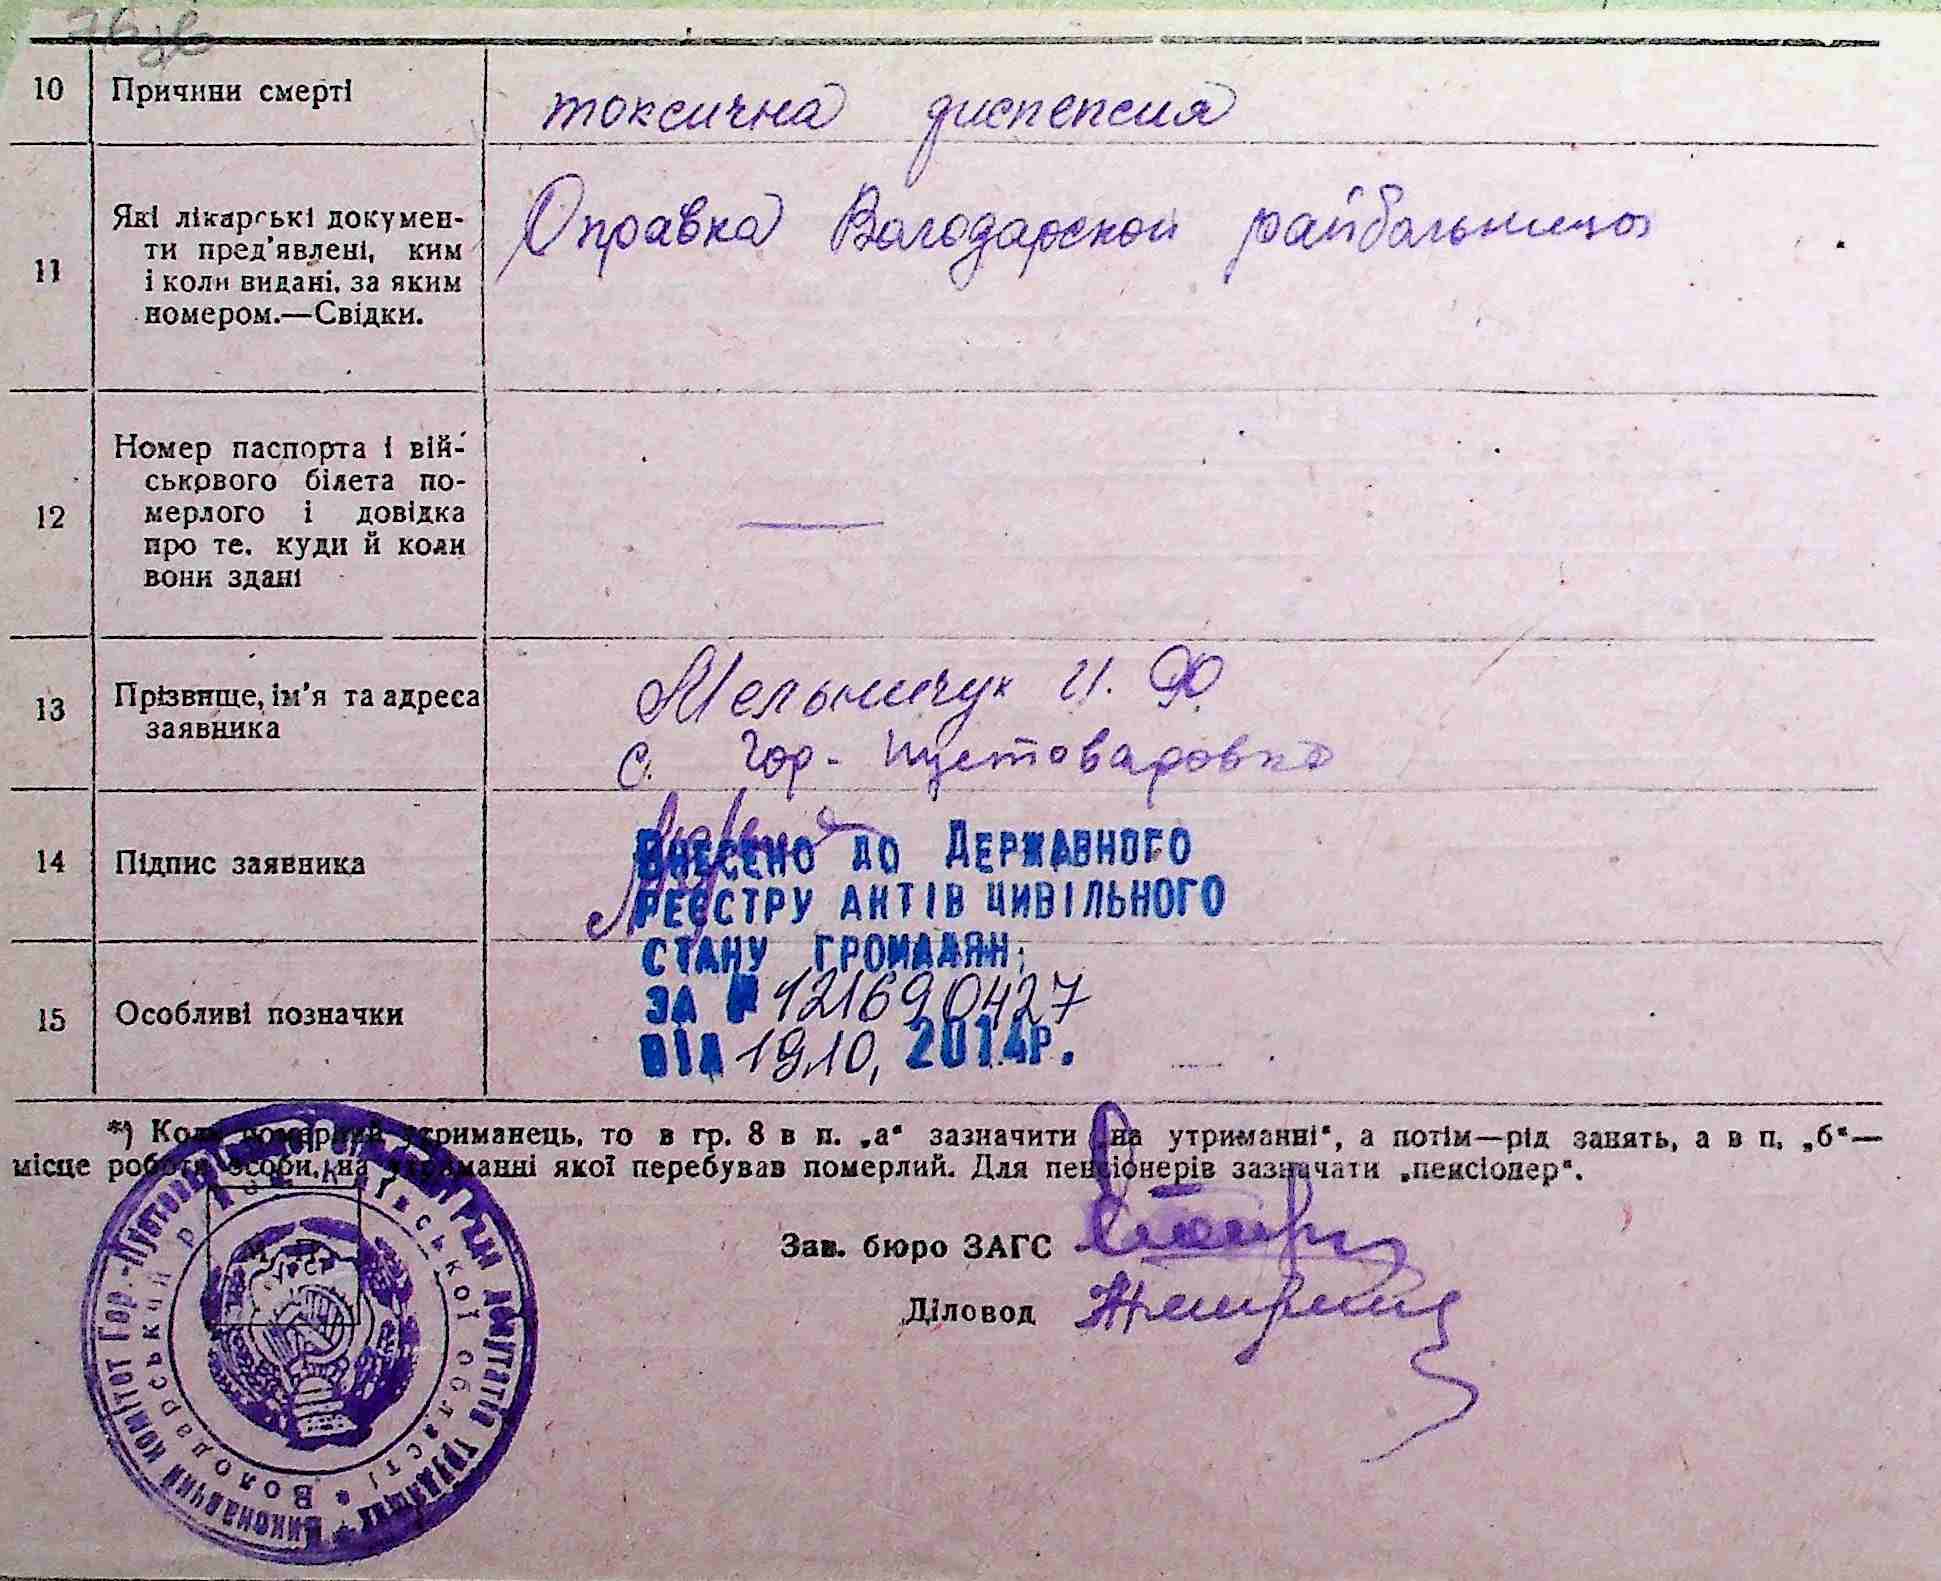 76
10 Причини смерті токсична диспепсия
11 Які лікарські докумен-
ти пред'явлені, ким
і коли видані, за яким
номером.—Свідки.
Справка Володарской райбольницы
12 Номер паспорта і вій-
ськового білета по-
мерлого і довідка
про те, куди й коли
вони здані
—
13 Прізвище, ім'я та адреса
заявника
Мельничук И. Ф.
с. Гор-Пустоваровка
14 Підпис заявника
15 Особливі позначки
ВНЕСЕНО ДО ДЕРЖАВНОГО
РЕЄСТРУ АКТІВ ЦИВІЛЬНОГО
СТАНУ ГРОМАДЯН,
ЗА № 121690427
ВІД 19.10, 2014Р.
*) Коли померлий утриманець, то в гр. 8 в п. „а“ зазначити „на утриманні“, а потім—рід занять, а в п. „б“—
місце роботи особи, на утриманні якої перебував померлий. Для пенсіонерів зазначати „пенсіонер“.
Зав. бюро ЗАГС
Діловод
Виконавчий комітет Гор.-Пустов депутатів трудящих
Володарський р Київської області
УРСР